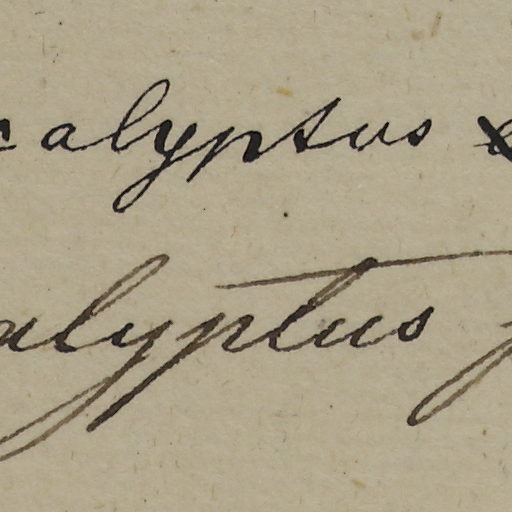 calyptus
alyptus